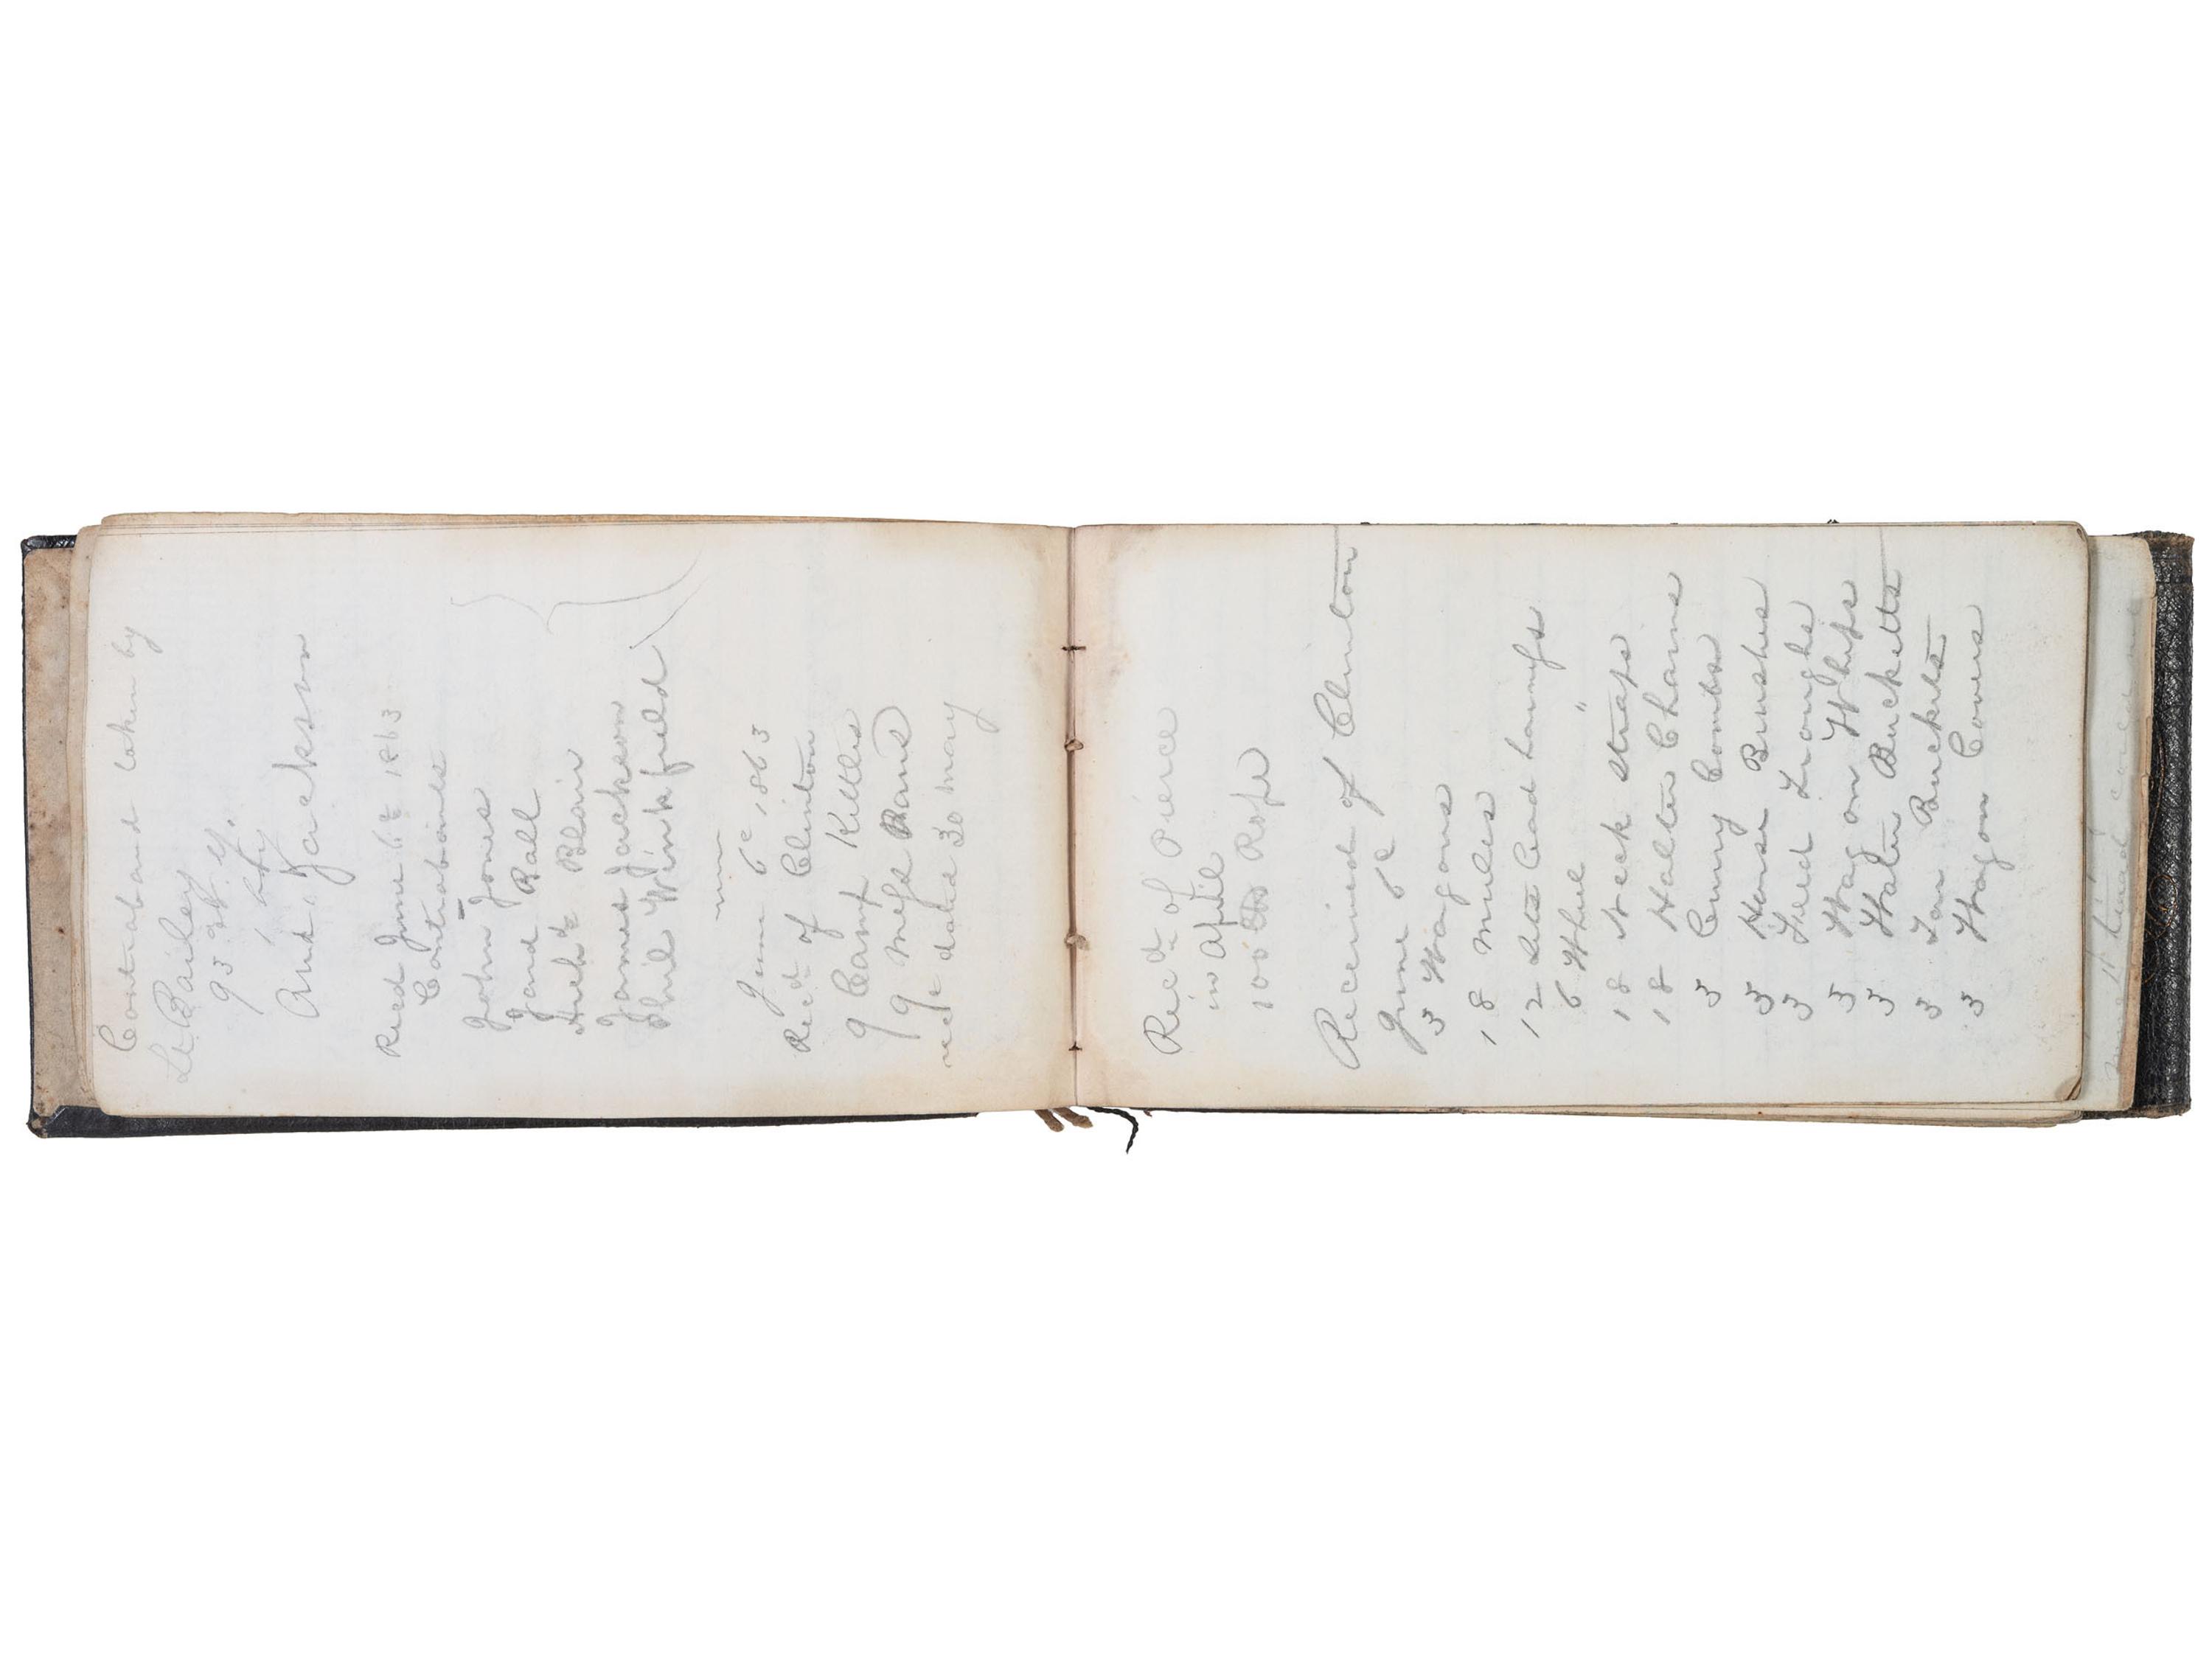 Contraband taken by
Lt Bailey
93 N.Y.
And. Jackson
Recd June 6th 1863
Contrabands
John Jones
Jand Ball
Huek Blair
James Jackson
Phil Winkfield
June 6th 1863
Recd of Clinton
9 Camp Kettles
9 Mess Pans
rect date 30 may
Recd of Pierce
in April
100 lbs Rope
Received of Clinton
June 6th
3 Wagons
18 Mules
12 Sets Lead harness
6 Wheel "
18 Neck Straps
18 Halter Chains
3 Curry Combs
3 Horse Brushes
3 Feed Troughs
3 Wagon Whips
3 Water Bucketts
3 Tar Buckets
3 Wagon Covers